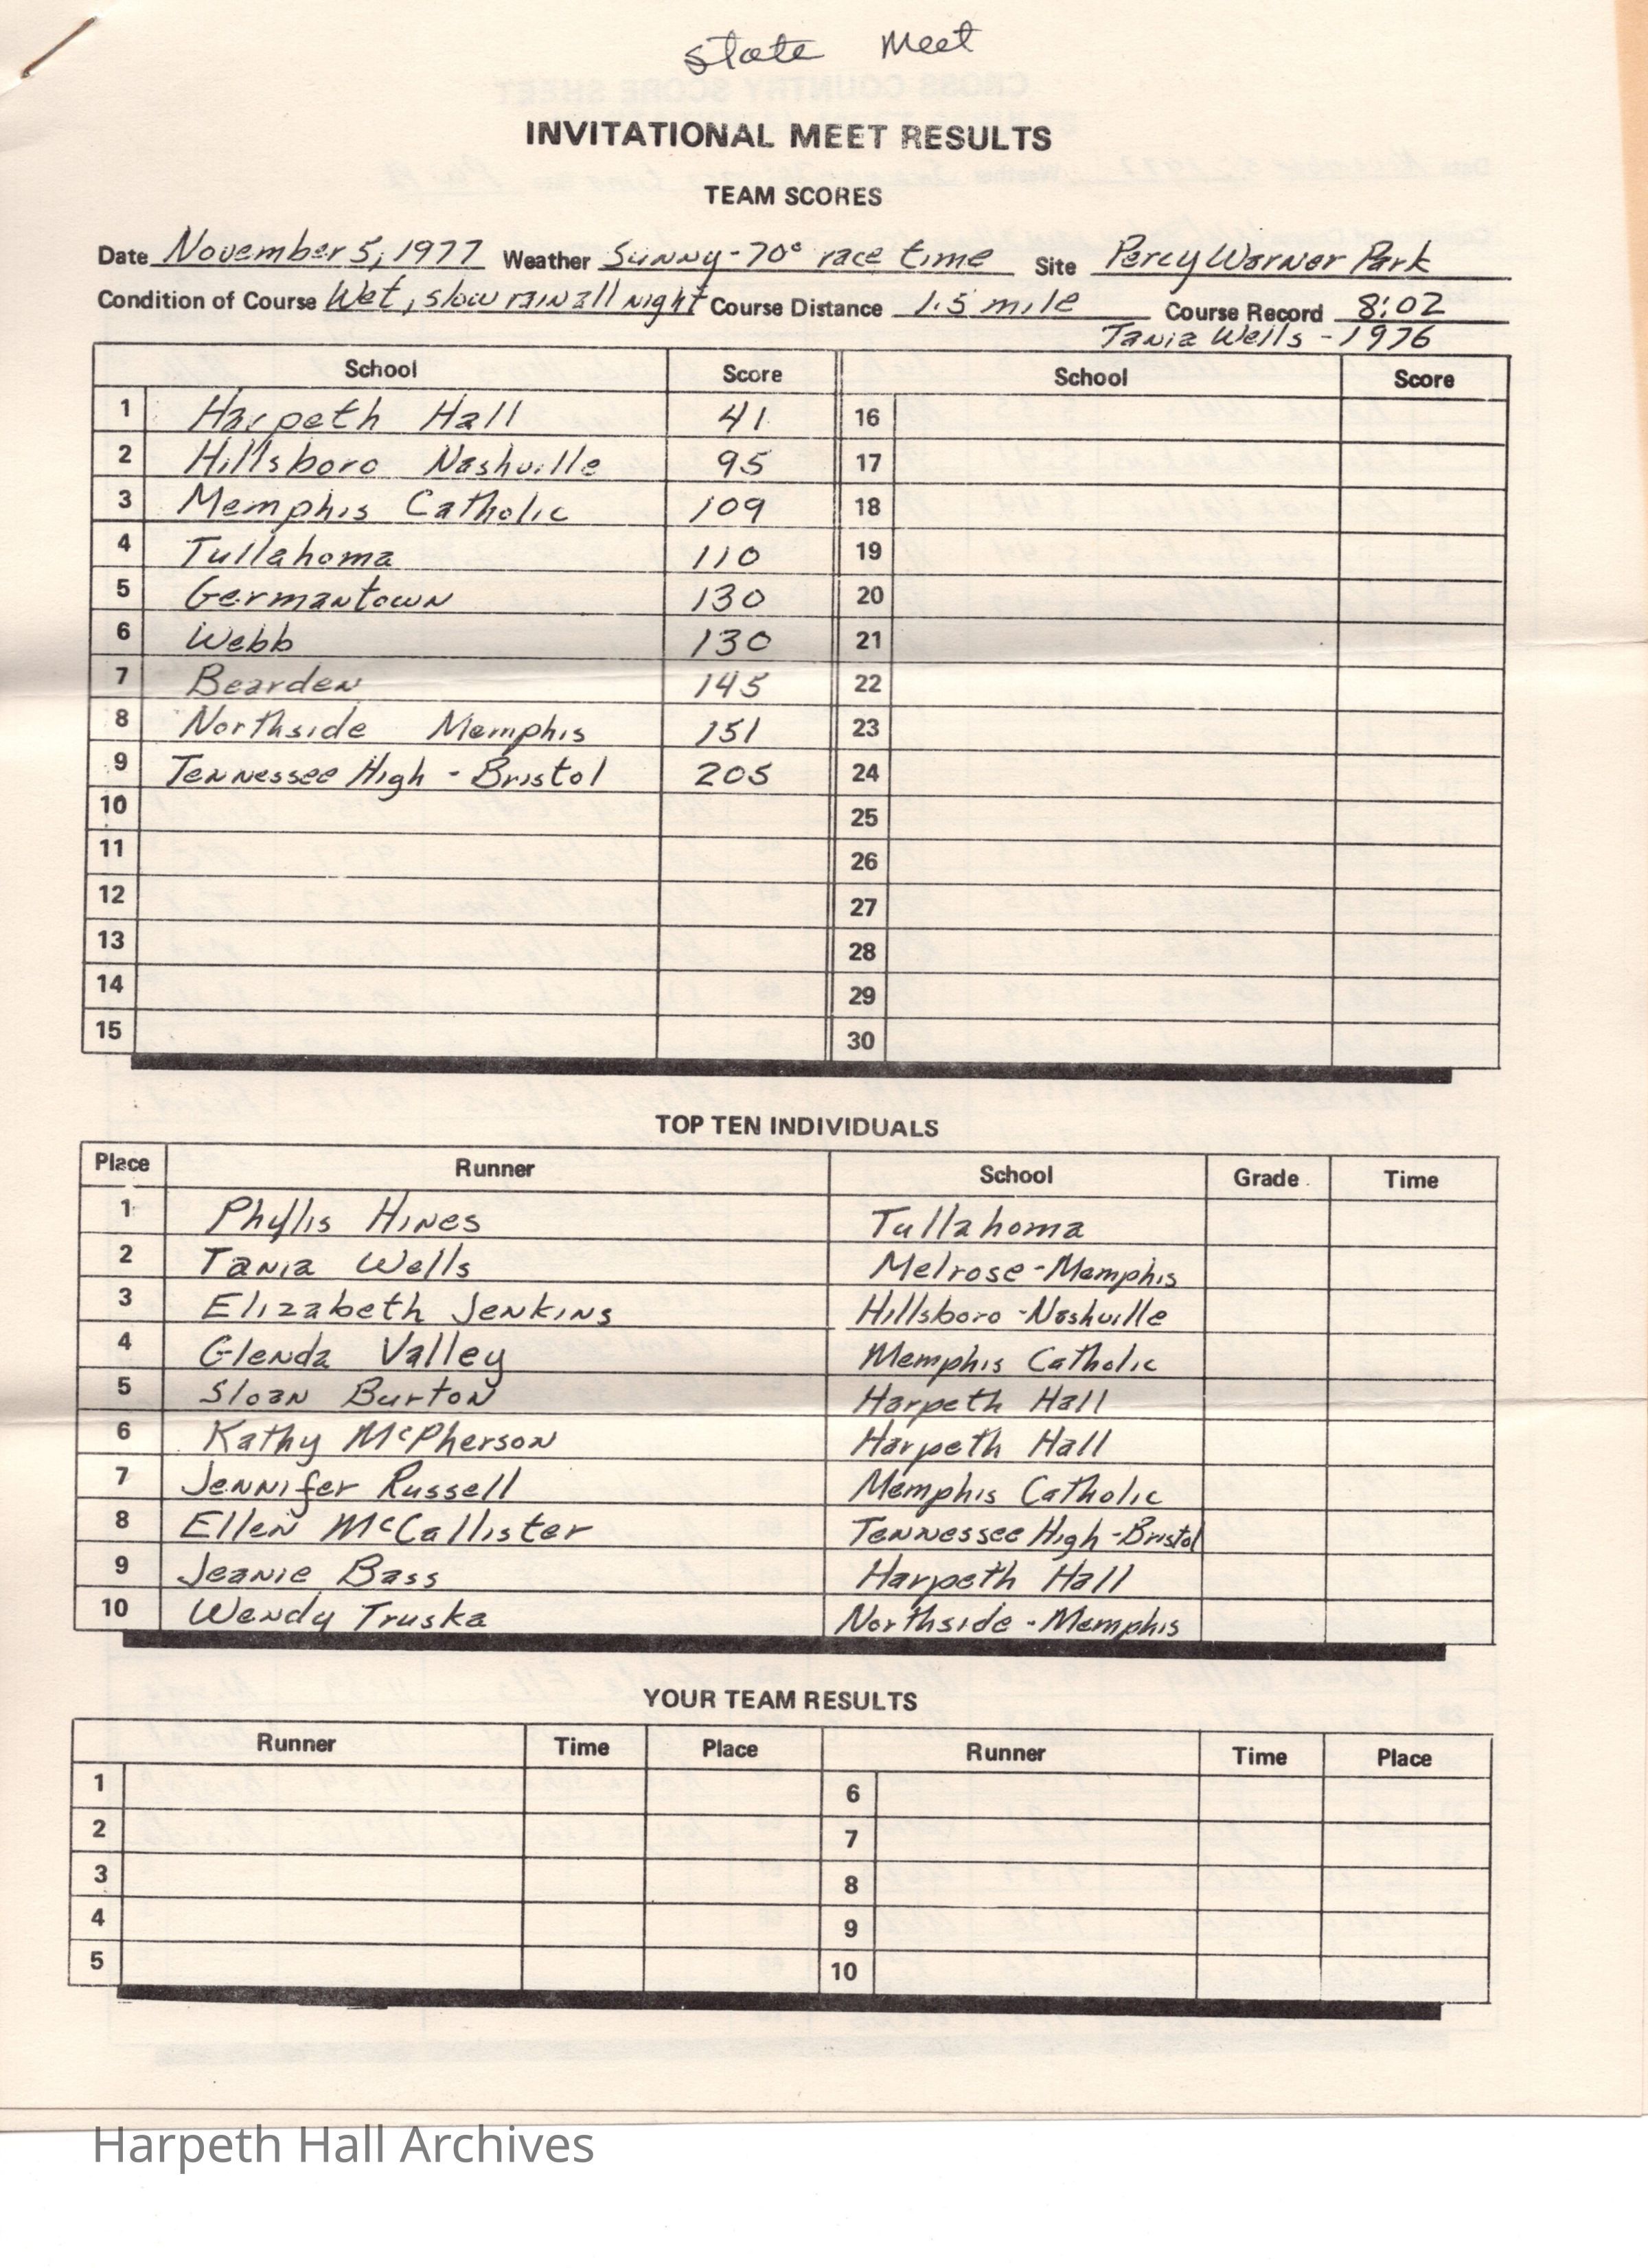 State Meet
INVITATIONAL MEET RESULTS
TEAM SCORES
Date November 5, 1977 Weather Sunny-70° race time Site Percy Warner Park
Condition of Course Wet, slow rain all night Course Distance 1.5 mile Course Record 8:02
Tania Wells - 1976
School Score School Score
1 Harpeth Hall 41 16
2 Hillsboro Nashville 95 17
3 Memphis Catholic 109 18
4 Tullahoma 110 19
5 Germantown 130 20
6 Webb 130 21
7 Bearden 145 22
8 Northside Memphis 151 23
9 Tennessee High - Bristol 205 24
10 25
11 26
12 27
13 28
14 29
15 30
TOP TEN INDIVIDUALS
Place Runner School Grade Time
1 Phyllis Hines Tullahoma
2 Tania Wells Melrose-Memphis
3 Elizabeth Jenkins Hillsboro-Nashville
4 Glenda Valley Memphis Catholic
5 Sloan Burton Harpeth Hall
6 Kathy McPherson Harpeth Hall
7 Jennifer Russell Memphis Catholic
8 Ellen McCallister Tennessee High-Bristol
9 Jeanie Bass Harpeth Hall
10 Wendy Truska Northside-Memphis
YOUR TEAM RESULTS
Runner Time Place Runner Time Place
1 6
2 7
3 8
4 9
5 10
Harpeth Hall Archives